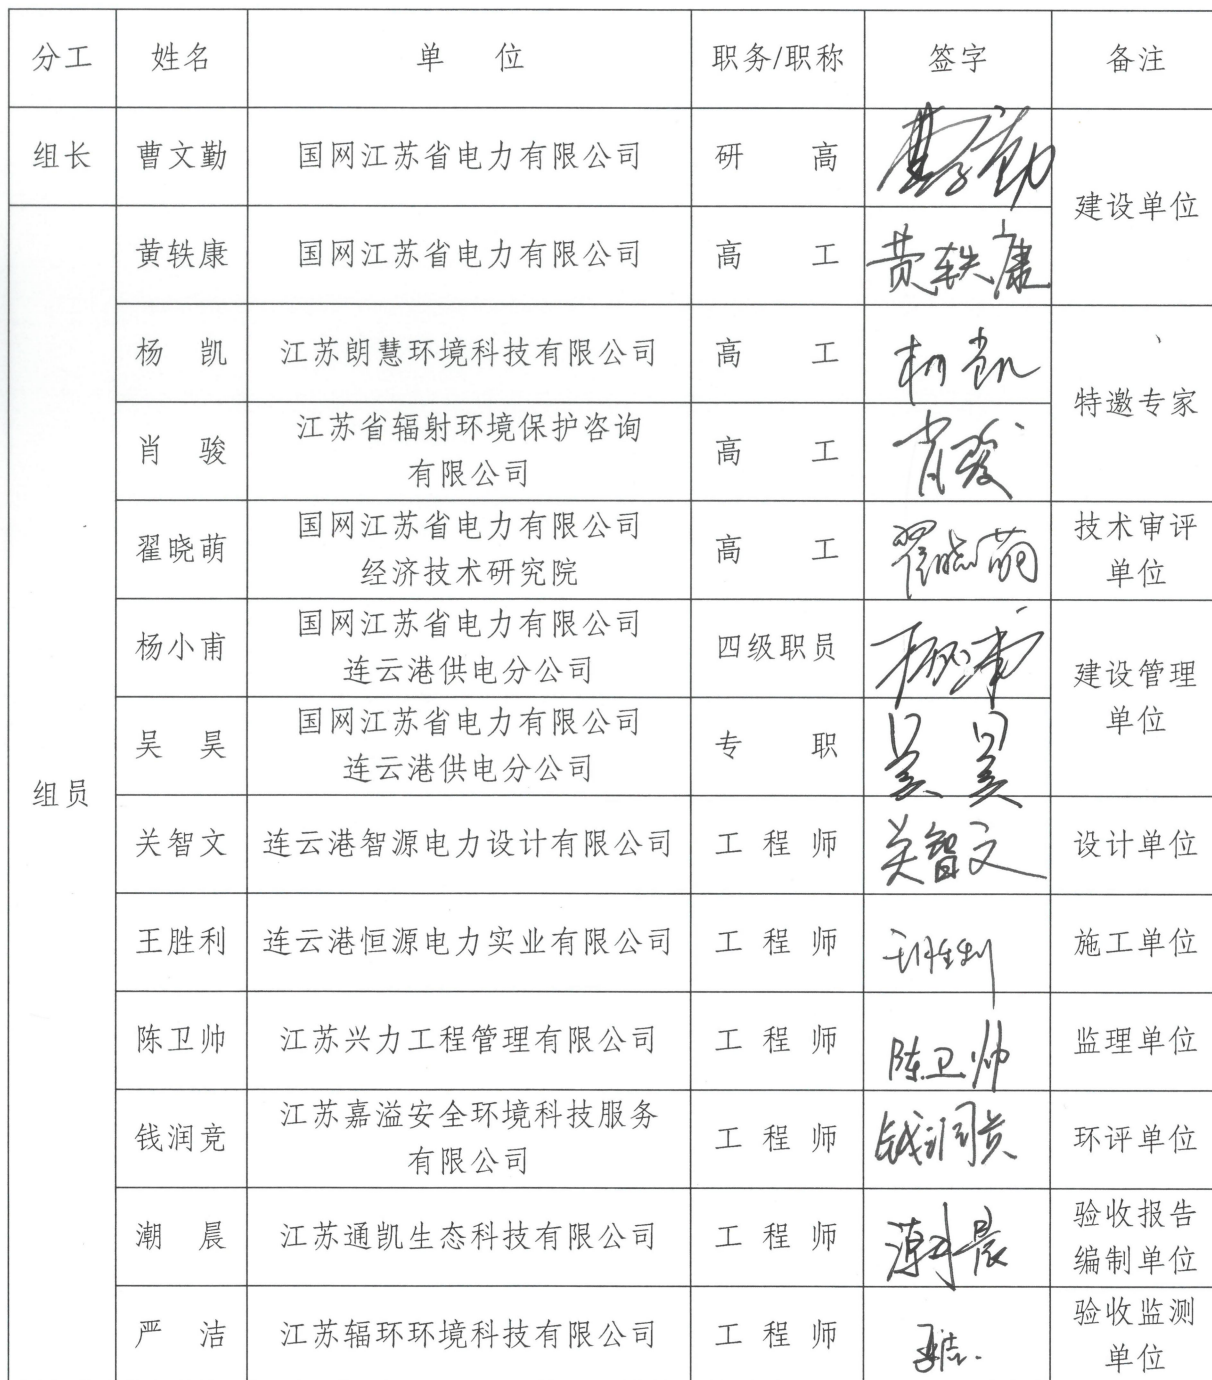 分工 姓名 单 位 职务/职称 签字 备注
组长 曹文勤 国网江苏省电力有限公司 研 高 曹文勤
建设单位
黄轶康 国网江苏省电力有限公司 高 工 黄轶康
杨 凯 江苏朗慧环境科技有限公司 高 工 杨凯
特邀专家
肖 骏 江苏省辐射环境保护咨询
有限公司 高 工 肖骏
翟晓萌 国网江苏省电力有限公司
经济技术研究院 高 工 翟晓萌 技术审评
单位
杨小甫 国网江苏省电力有限公司
连云港供电分公司 四级职员 杨小甫
建设管理
单位
吴 昊 国网江苏省电力有限公司
连云港供电分公司 专 职 吴昊
组员
关智文 连云港智源电力设计有限公司 工 程 师 关智文 设计单位
王胜利 连云港恒源电力实业有限公司 工 程 师 王胜利 施工单位
陈卫帅 江苏兴力工程管理有限公司 工 程 师 陈卫帅 监理单位
钱润竞 江苏嘉溢安全环境科技服务
有限公司 工 程 师 钱润竞 环评单位
潮 晨 江苏通凯生态科技有限公司 工 程 师 潮晨 验收报告
编制单位
严 洁 江苏辐环环境科技有限公司 工 程 师 严洁 验收监测
单位